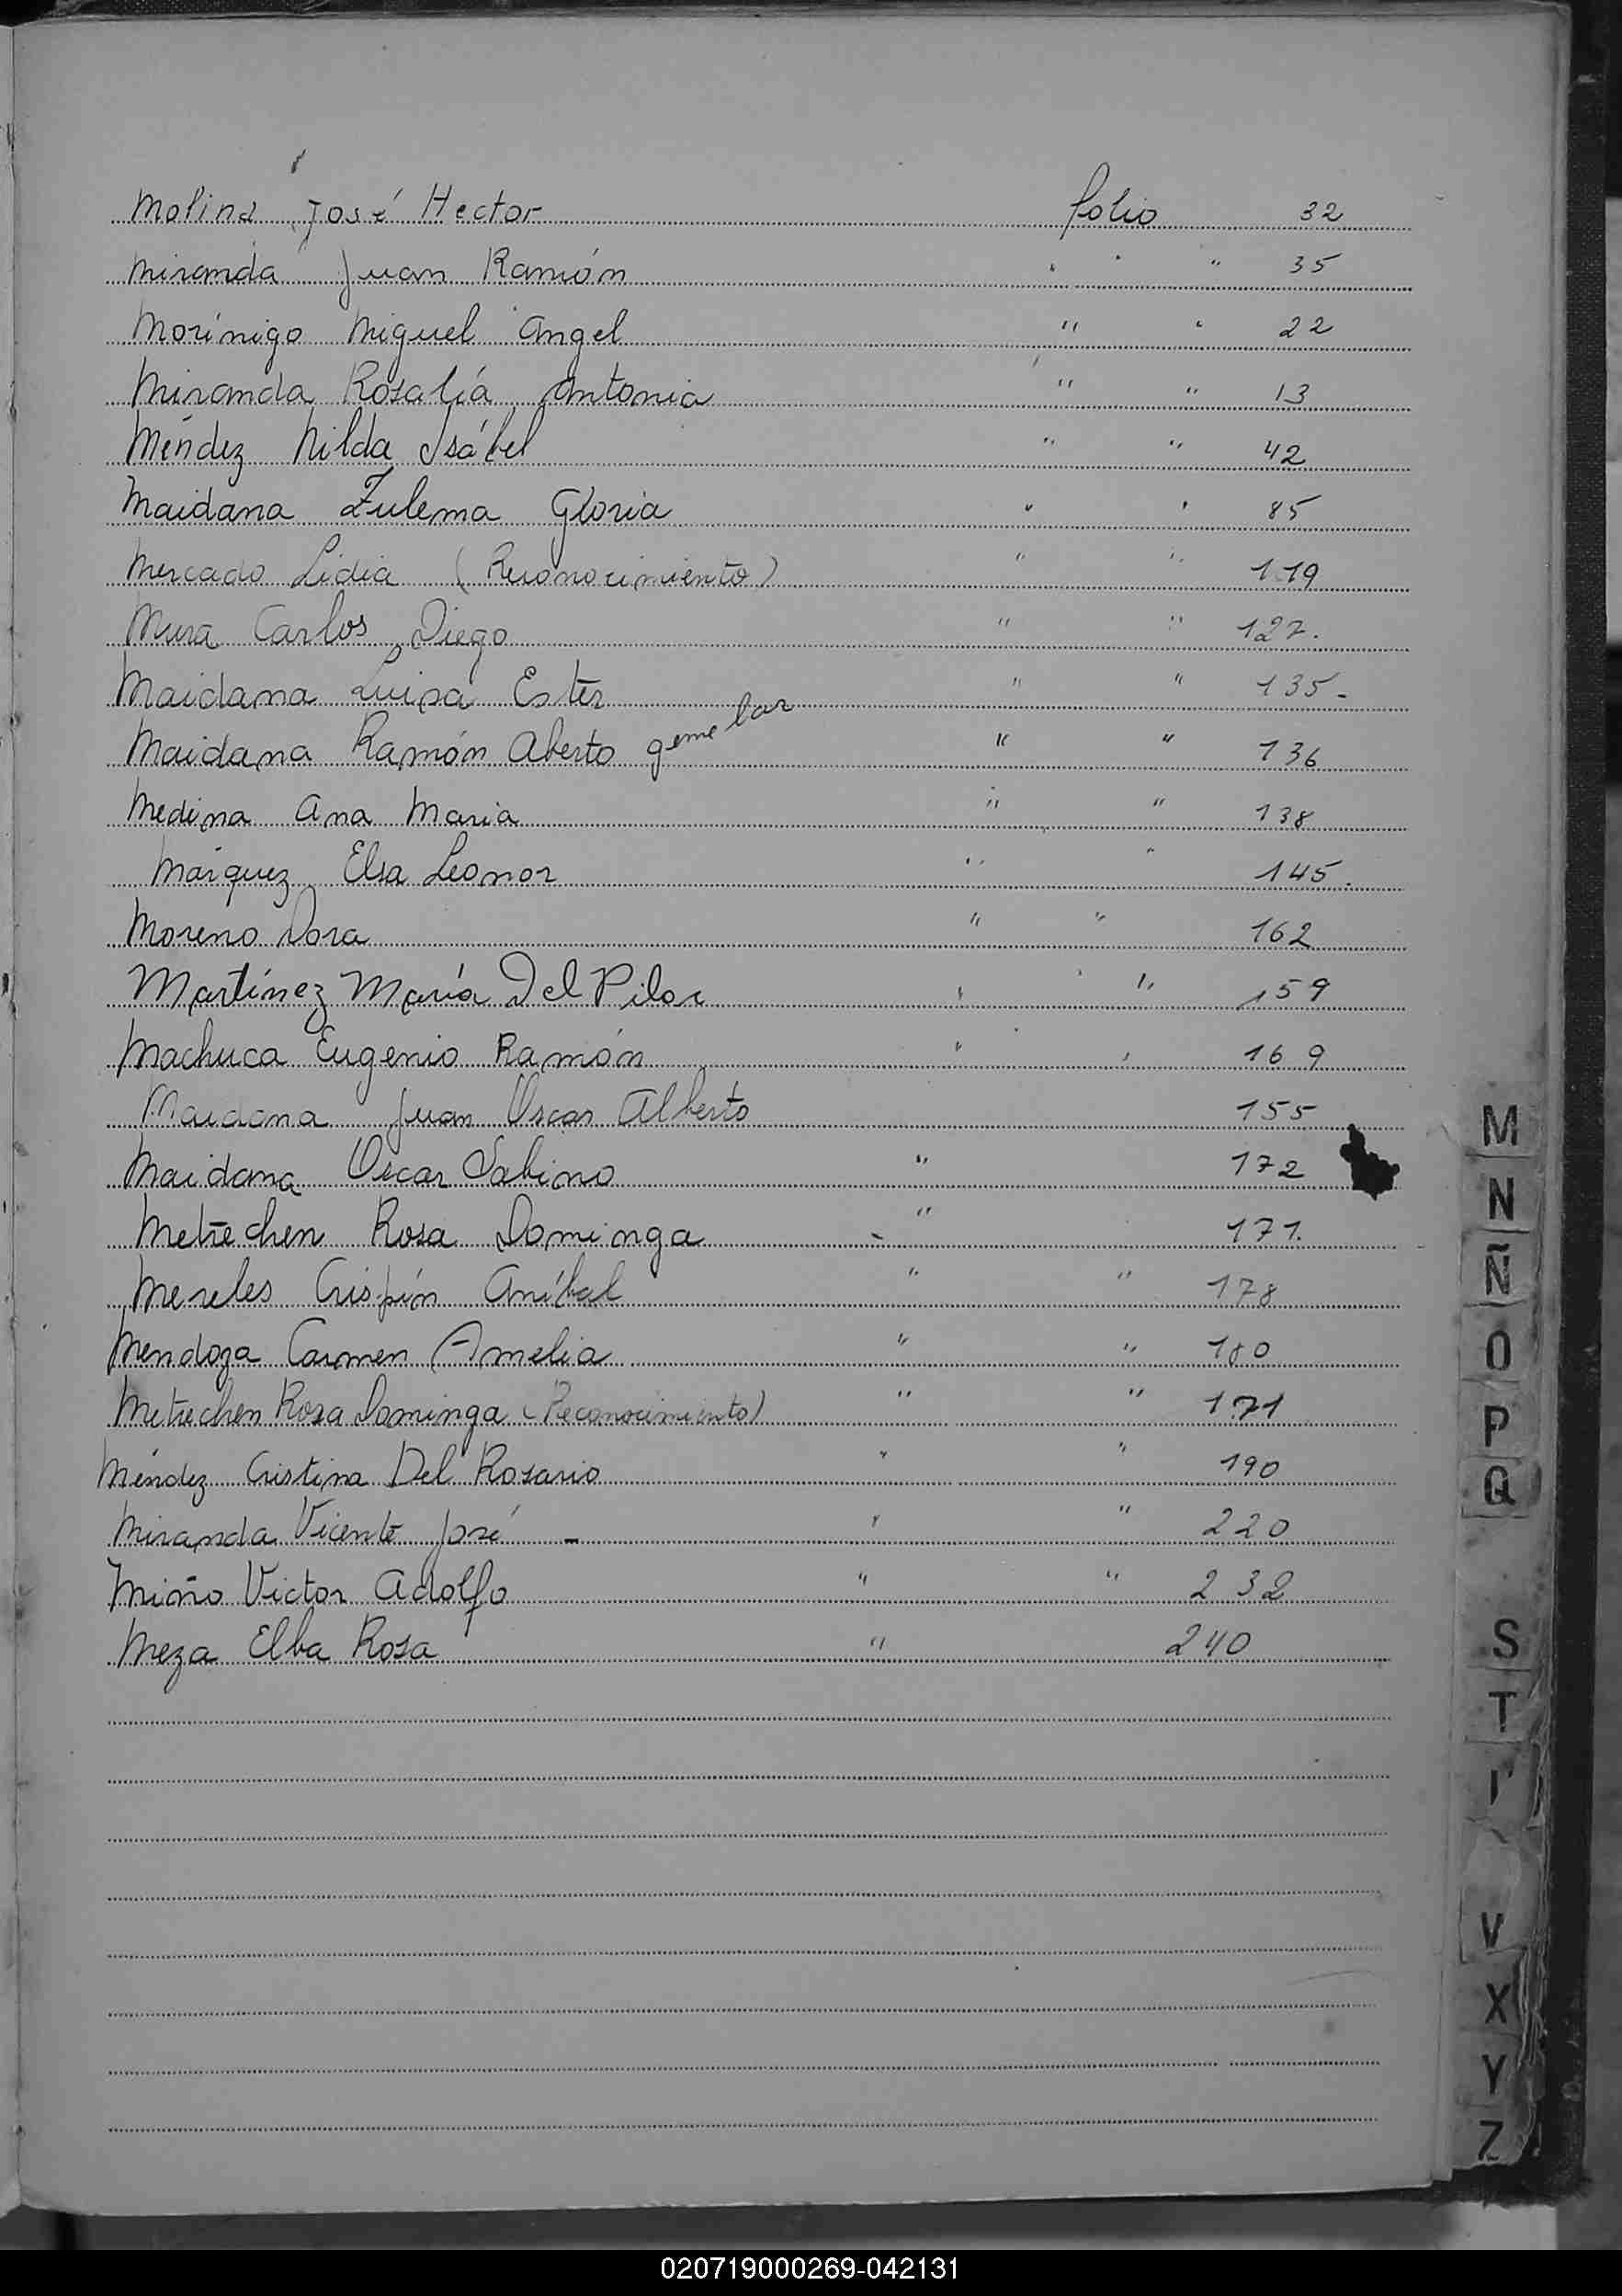 Molina José Hector folio 32
Miranda Juan Ramón " " 35
Morínigo Miguel Angel " " 22
Miranda Rosalía Antonia " " 13
Méndez Nilda Isábel " " 42
Maidana Zulema Gloria " " 85
Mercado Lidia (Reconocimiento) " " 119
Mura Carlos Diego " " 127.
Maidana Luisa Ester " " 135-
Maidana Ramón Aberto gemelar " " 136
Medina Ana Maria " " 138
Márquez Elsa Leonor " " 145.
Moreno Dora " " 162
Martínez María Del Pilar " " 159
Machuca Eugenio Ramón " " 169
Maidana Juan Oscar Alberto 155
Maidana Oscar Sabino " 172
Metrechen Rosa Dominga - " 171.
Mereles Crispín Aníbal " " 178
Mendoza Carmen Amelia " " 180
Metrechen Rosa Dominga (Reconocimiento) " " 171
Méndez Cristina Del Rosario " " 190
Miranda Vicente José - " " 220
Miño Victor Adolfo " " 232
Meza Elba Rosa " 240
M
N
Ñ
O
P
Q
S
T
V
X
Y
Z
020719000269-042131